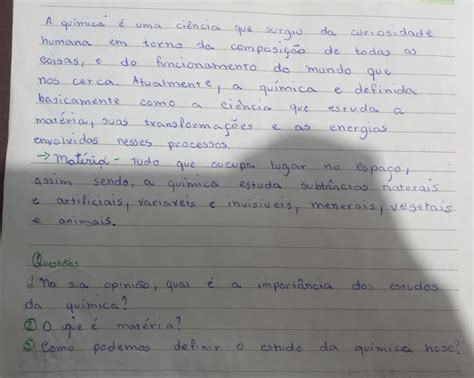 A química é uma ciência que surgiu da curiosidade
humana em torno da composição de todas as
coisas, e do funcionamento do mundo que
nos cerca. Atualmente, a química e definida
basicamente como a ciência que estuda a
matéria, suas transformações e as energias
envolvidas nesses processos.
→ Matéria - Tudo que ocupa lugar no espaço,
assim sendo, a química estuda substâncias naturais
e artificiais, variaveis e invisiveis, menerais, vegetais
e animais.
Questões
① Na sua opinião, qual é a importância dos estudos
da química?
② O que é matéria?
③ Como podemas definir o estudo da química hose?